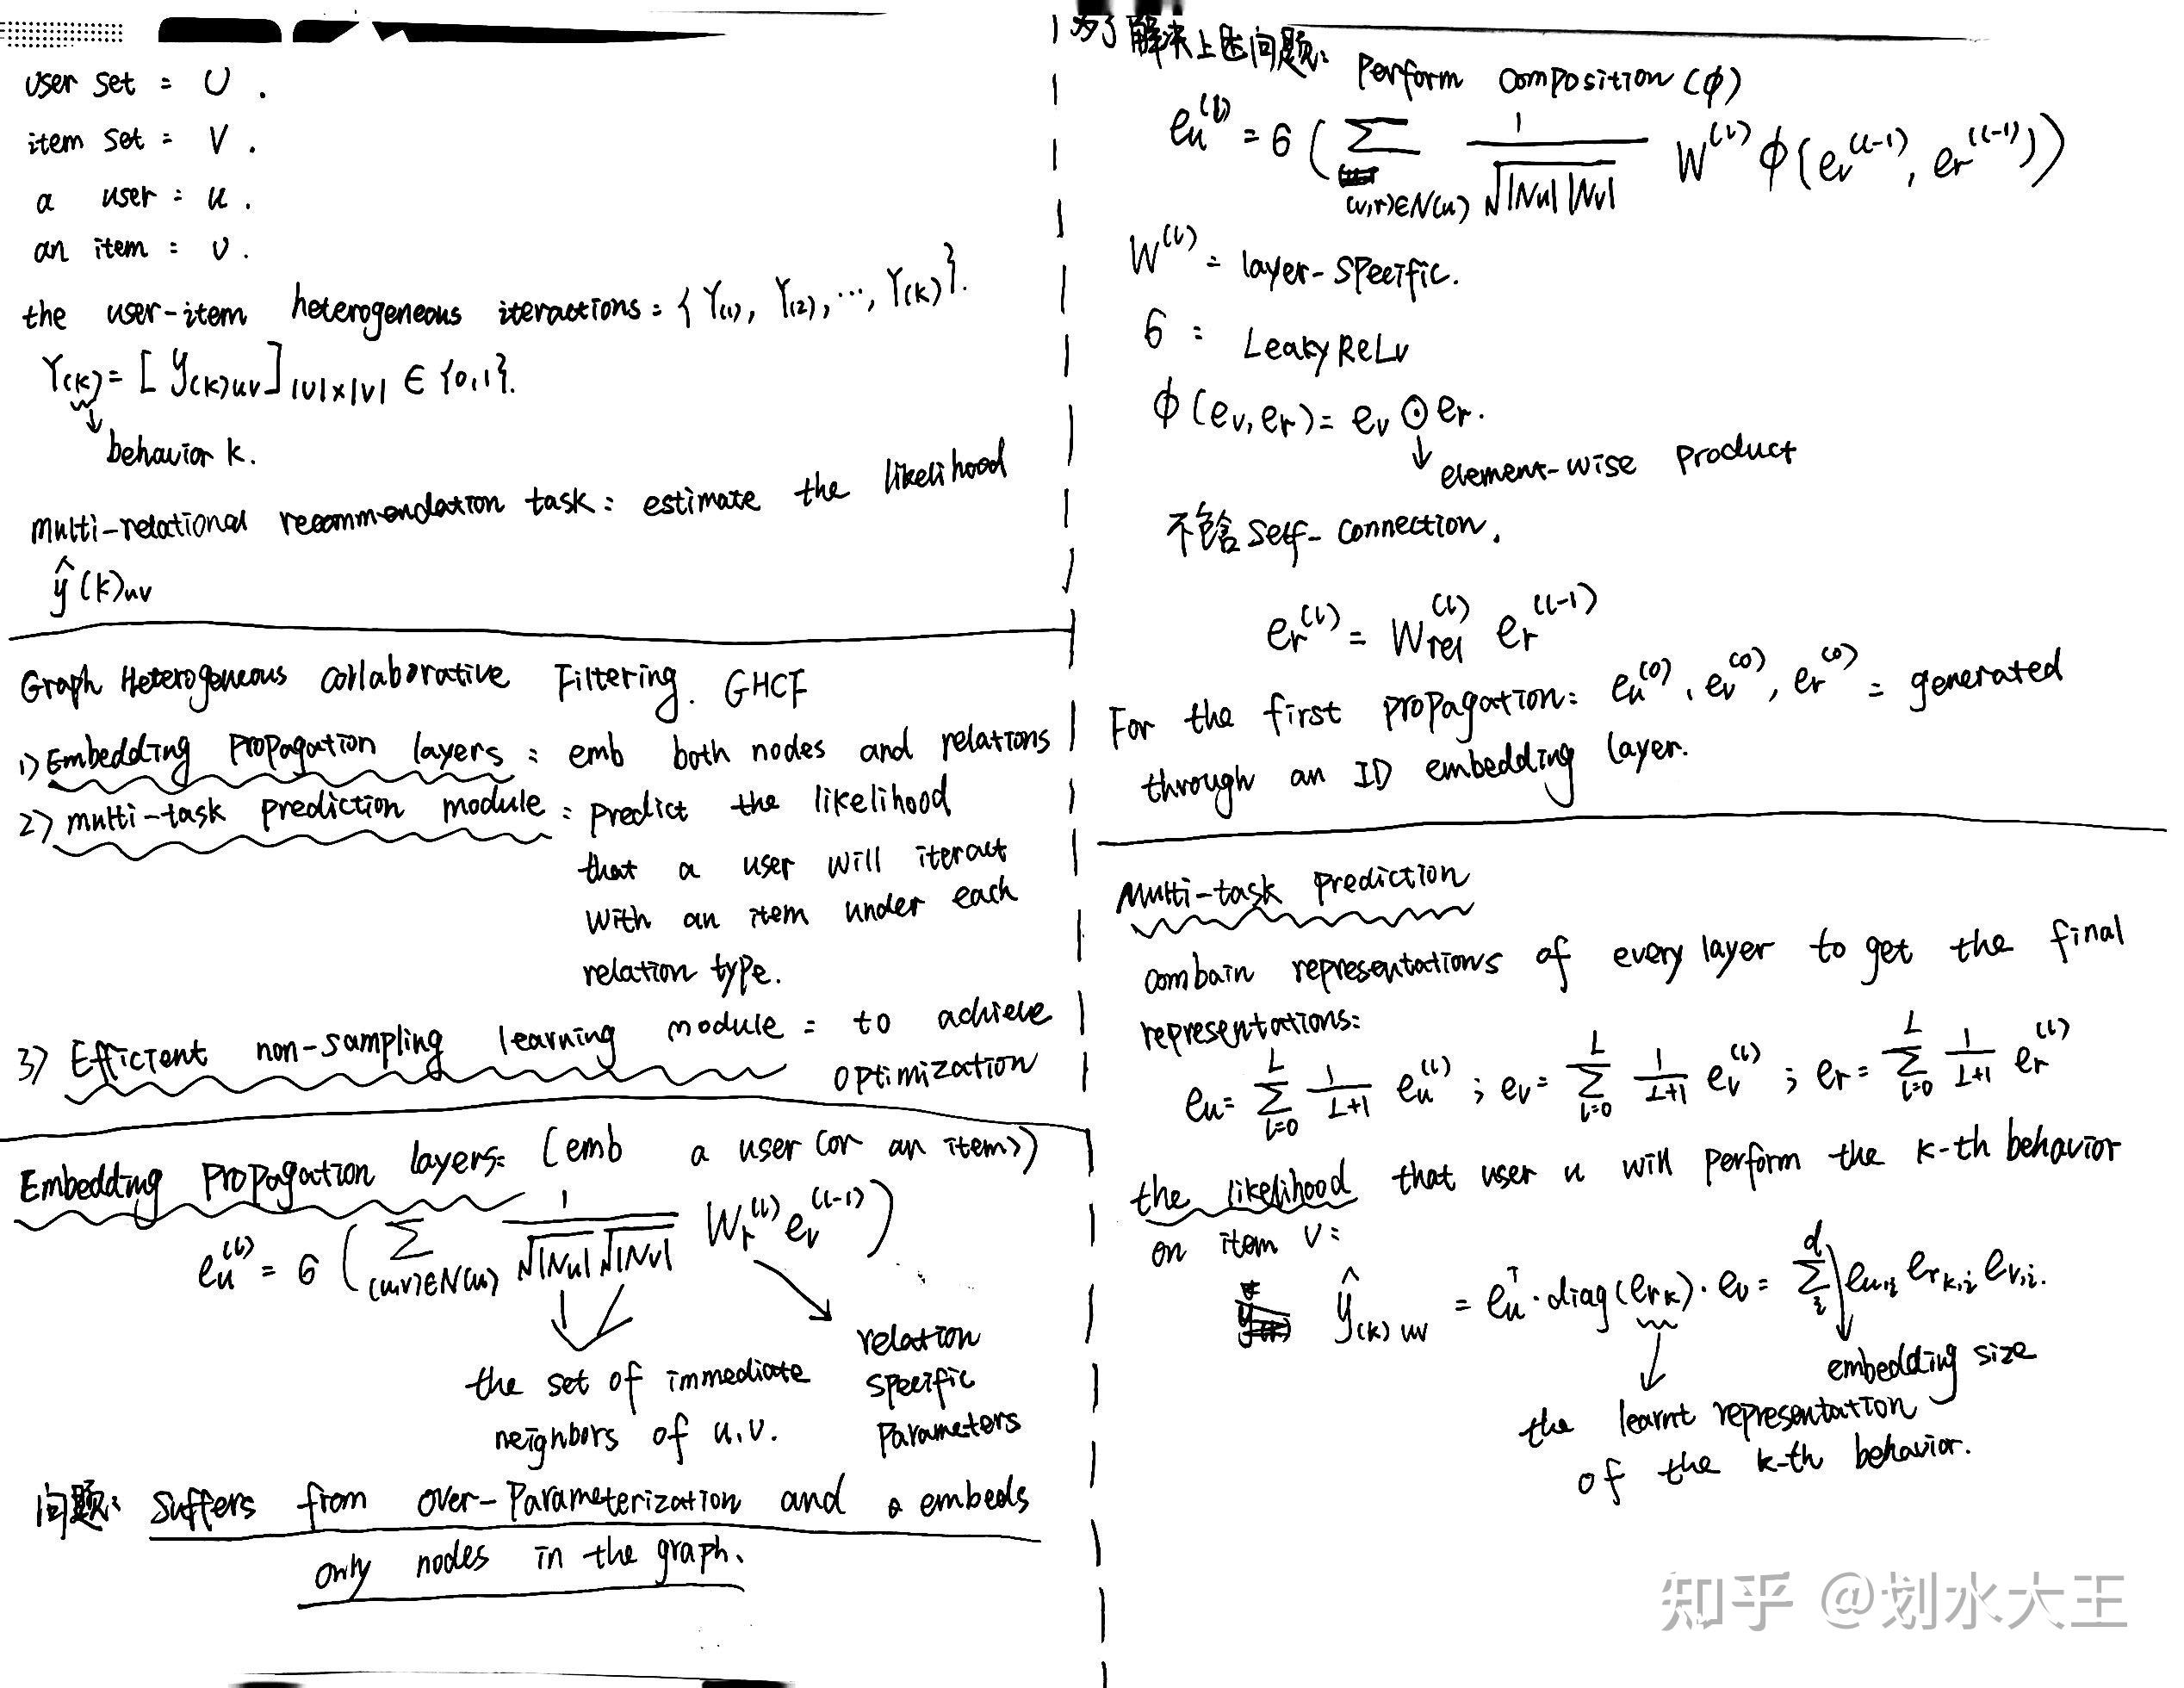 user set : U .
item set : V .
a user : u .
an item : v .
the user-item heterogeneous iteractions : { Y(1), Y(2), ..., Y(K) }.
Y(k) = [ y(k)uv ]|U|×|V| ∈ {0,1}.
↓
behavior k.
multi-relational recommendation task : estimate the likelihood
ŷ(k)uv
Graph Heterogeneous Collaborative Filtering. GHCF
1) Embedding propagation layers : emb both nodes and relations
2) multi-task prediction module : predict the likelihood
that a user will iteract
with an item under each
relation type.
3) Efficient non-sampling learning module : to achieve
optimization
Embedding propagation layers: (emb a user (or an item))
e_u^(l) = σ ( Σ_(u,v)∈N(u) 1/(√|Nu| √|Nv|) W_r^(l) e_v^(l-1) )
the set of immediate
neighbors of u,v.
relation
specific
parameters
问题: suffers from over-parameterization and embeds
only nodes in the graph.
为了解决上述问题: perform composition (ϕ)
e_u^(l) = σ ( Σ_(v,r)∈N(u) 1/√|Nu||Nv| W^(l) ϕ(e_v^(l-1), e_r^(l-1)) )
W^(l) : layer-specific.
σ : LeakyReLU
ϕ(e_v, e_r) = e_v ⊙ e_r.
↓ element-wise product
不含 self-connection.
e_r^(l) = W_rel^(l) e_r^(l-1)
For the first propagation: e_u^(0), e_v^(0), e_r^(0) : generated
through an ID embedding layer.
Multi-task prediction
combain representations of every layer to get the final
representations:
e_u = Σ_{l=0}^{L} 1/(L+1) e_u^(l) ; e_v = Σ_{l=0}^{L} 1/(L+1) e_v^(l) ; e_r = Σ_{l=0}^{L} 1/(L+1) e_r^(l)
the likelihood that user u will perform the k-th behavior
on item v:
ŷ(k)uv = e_u^T · diag(e_rk) · e_v = Σ_i^d e_u,i e_rk,i e_v,i.
embedding size
the learnt representation
of the k-th behavior.
知乎 @划水大王